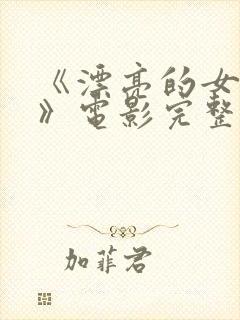 《漂亮的女
》电影完整
加菲君